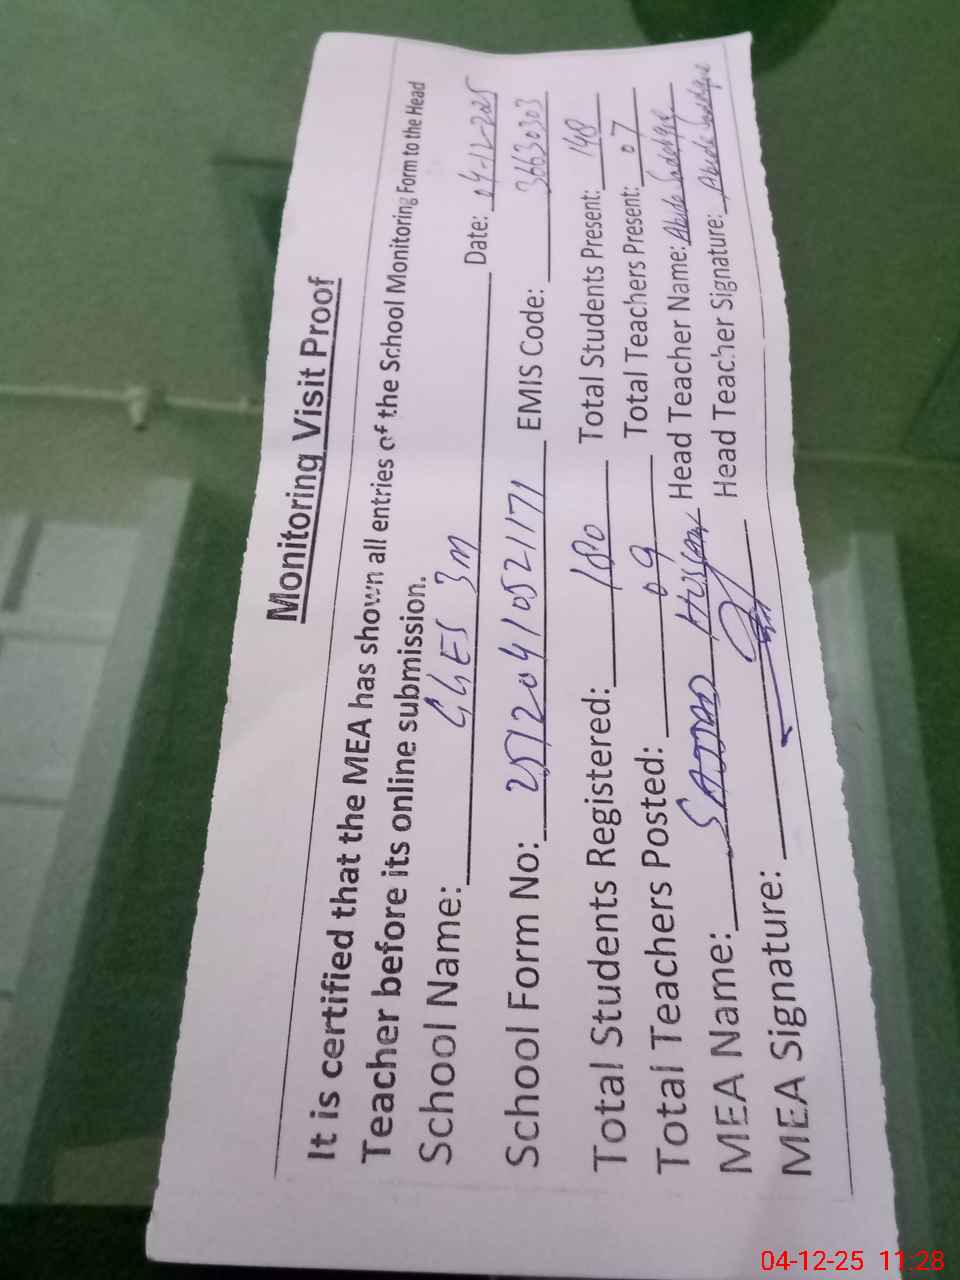 Monitoring Visit Proof
It is certified that the MEA has shown all entries of the School Monitoring Form to the Head
Teacher before its online submission.
School Name: GGES 3M Date: 04-12-2025
School Form No: 2512041052171 EMIS Code: 36630303
Total Students Registered: 180 Total Students Present: 148
Total Teachers Posted: 09 Total Teachers Present: 07
MEA Name: SAJJAD Hussain Head Teacher Name: Abida Saddique
MEA Signature: Head Teacher Signature: Abida Saddique
04-12-25 11:28